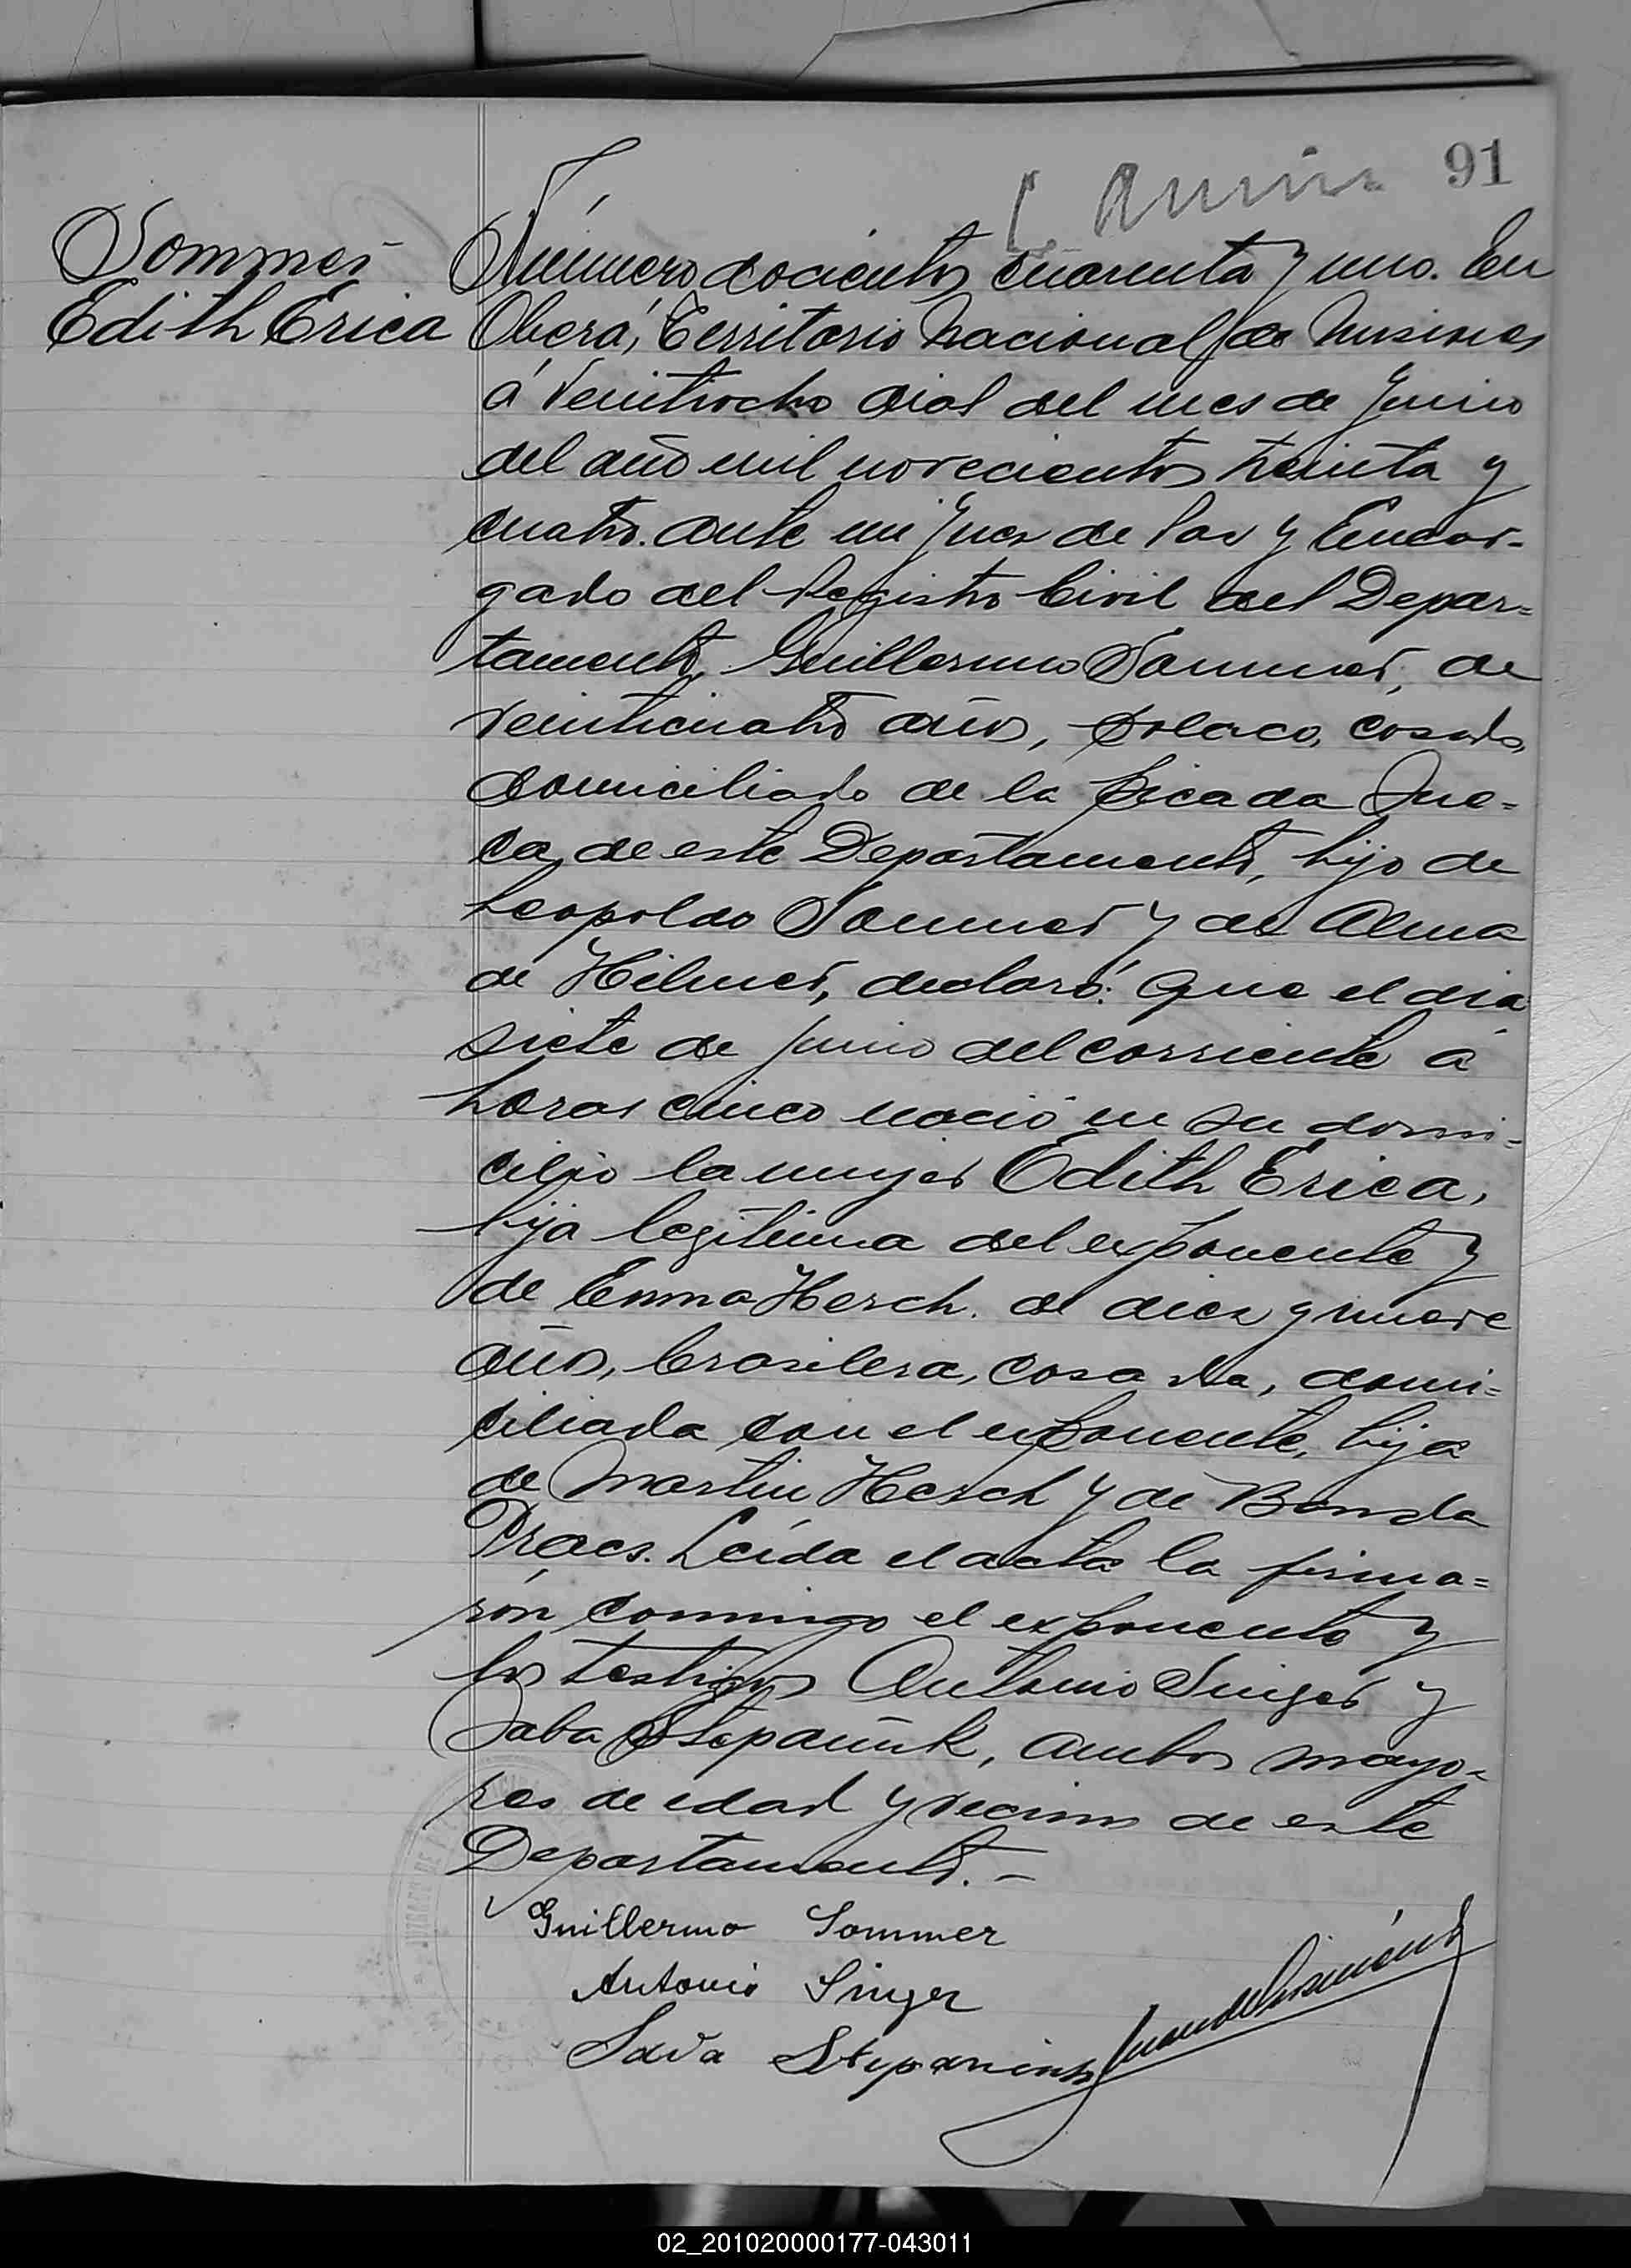 91
Sommer
Edith Erica
Número docientos cuarenta y uno. En
Oberá, Territorio Nacional de Misiones
á veintiocho dias del mes de Junio
del año mil novecientos treinta y
cuatro. ante mi Juez de Paz y Encar-
gado del Registro Civil del Depar=
tamento, Guillermo Sommer, de
veinticuatro años, polaco, casado,
domiciliado de la picada Sue-
ca, de este Departamento, hijo de
Leopoldo Sommer y de Alma
de Hilmer, declaró: Que el dia
siete de junio del corriente á
horas cinco nació en su domi-
cilio la mujer Edith Erica,
hija legítima del exponente y
de Emma Hesch. de diez y nueve
años, brasilera, casada, domi=
ciliada con el exponente, hija
de Martin Hesch y de Banda
Draes. Leída el acta la firma=
rón conmigo el exponente y
los testigos Antonio Singer y
Saba Stepañuk, ambos mayo-
res de edad y vecinos de este
Departamento.-
Guillermo Sommer
Antonio Singer
Sava
02_201020000177-043011